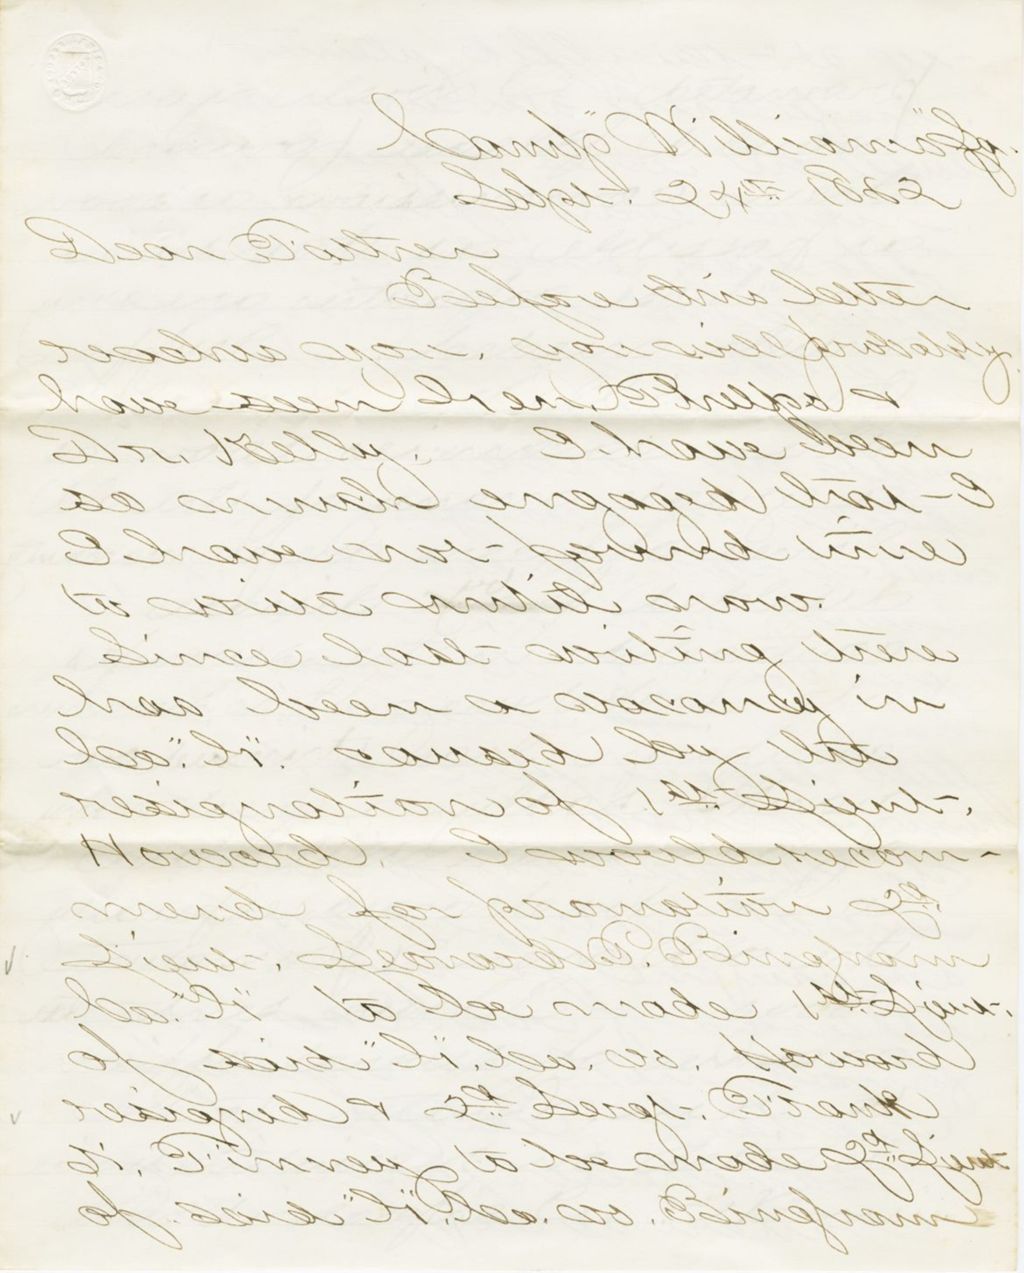 Camp
Sept. 24th 1862
Dear Father
Before this letter
reaches you, you will probably
have seen &
Dr. Kelly. I have been
so much engaged that I
I have not found time
to write until now.
Since last writing there
has been a vacancy in
Co. "H". caused by the
resignation of 1st Lieut.
Howard. I would recom-
mend for promotion 2d
Lieut. Bingham
to be made 1st Lieut.
of Co. "H". vice Howard
resigned & Sergt. Frank
to be made 2d Lieut
of Co. "H". vice Bingham